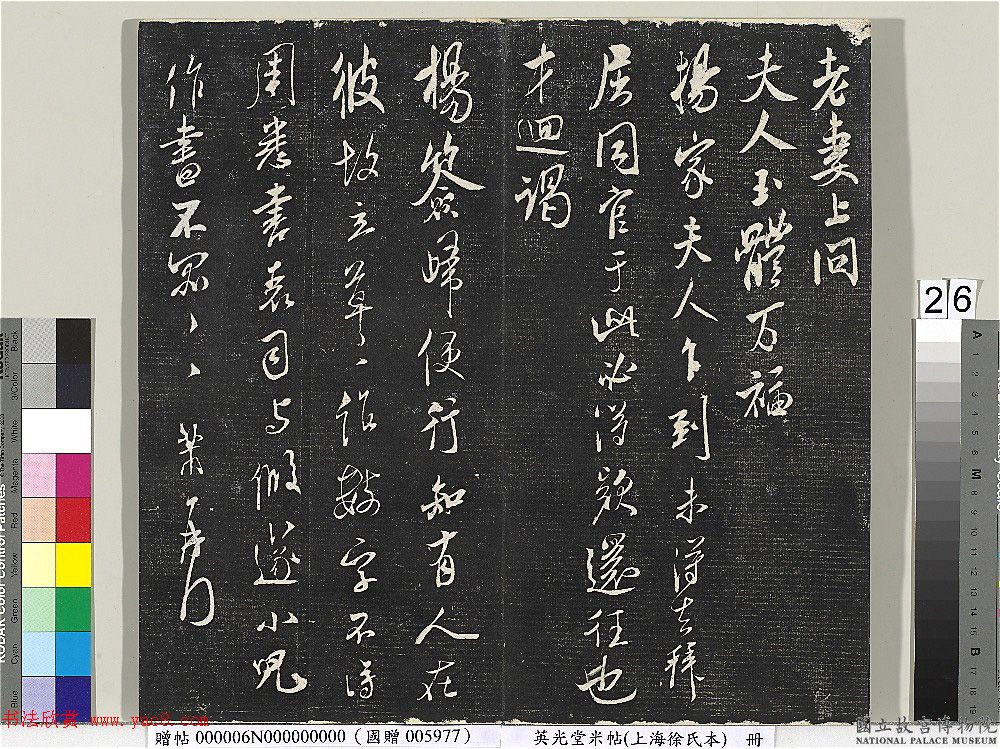 老妻上問
夫人玉體万福
楊家夫人乍到未得去拜
居同官于此必得款還往也
才迴謁
楊簽歸便行知有人在
彼故立草〻作數字不得
周悉書表司与假遂小兒
作書不罪〻〻芾頓首
26
贈帖 000006N000000000 (國贈 005977)
英光堂米帖(上海徐氏本) 冊
國立故宮博物院
NATIONAL PALACE MUSEUM
书法欣赏 www.yac8.com
KODAK Color Control Patches
Blue
Cyan
Green
Yellow
Red
Magenta
White
3/Color
Black
A
1
2
3
4
5
6
M
8
9
10
11
12
13
14
15
B
17
18
19